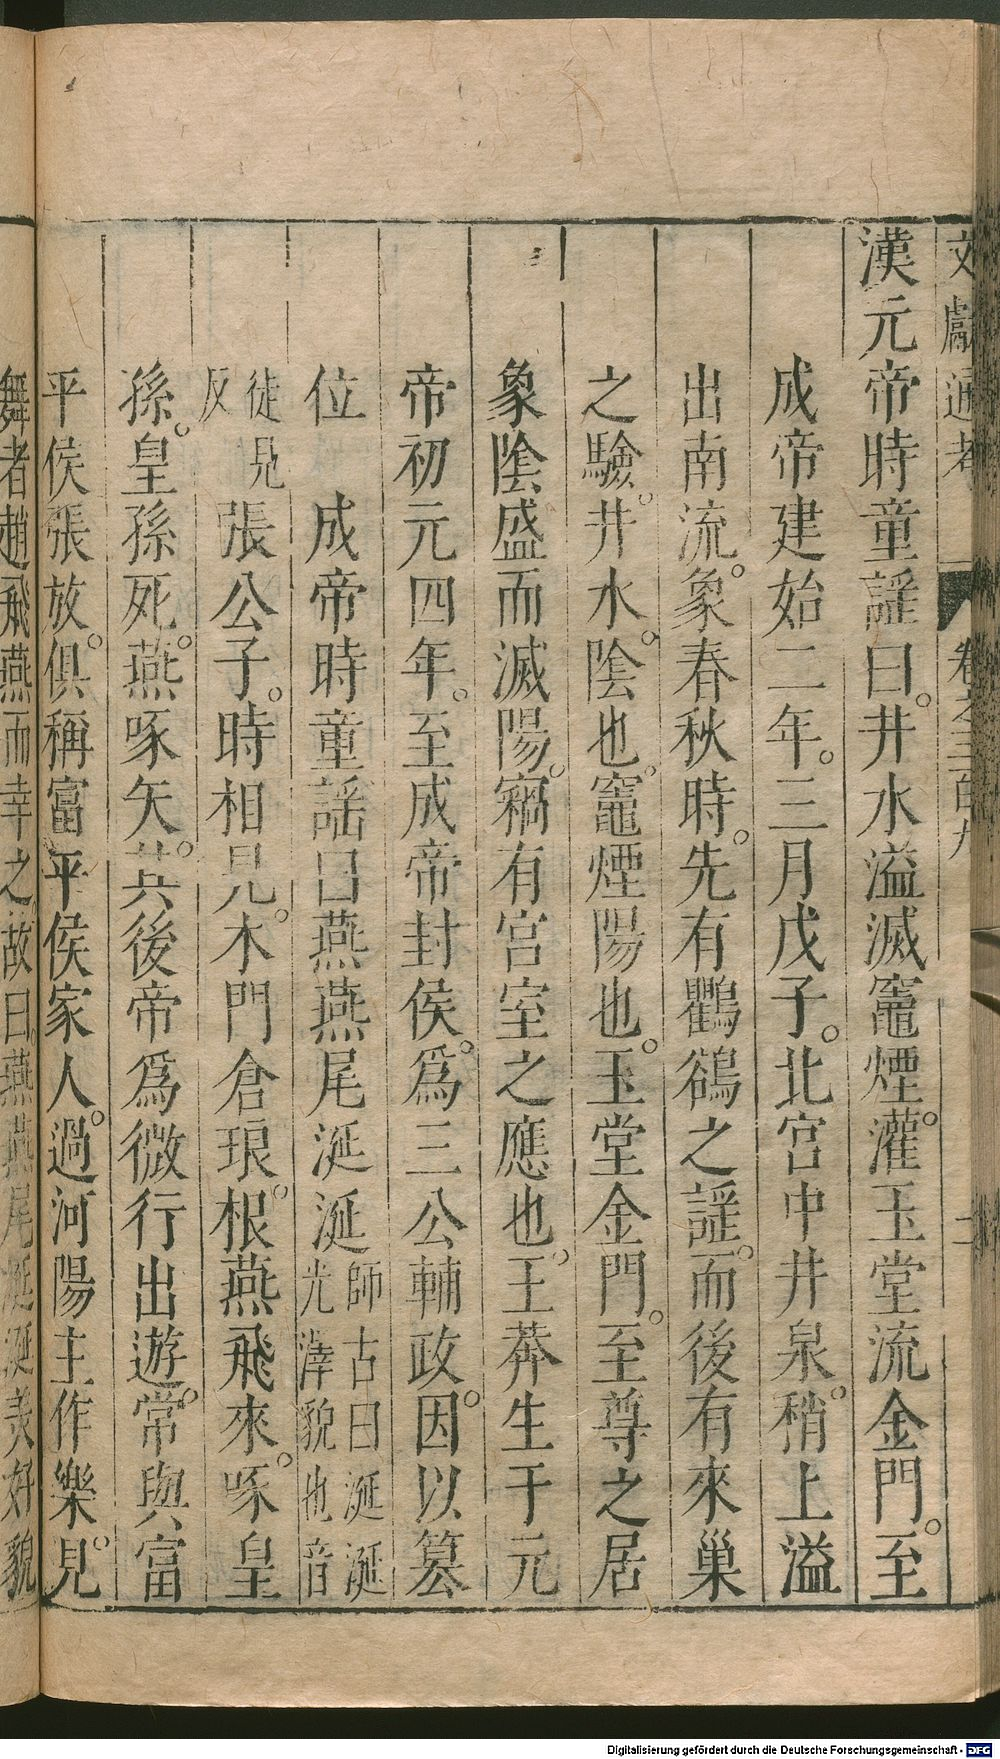 文獻通考 卷之三百九 二
漢元帝時童謠曰。井水溢滅竈煙。灌玉堂流金門。至
成帝建始二年。三月戊子。北宮中井泉。稍上溢
出南流。象春秋時。先有鸜鵒之謠。而後有來巢
之驗。井水。陰也。竈煙陽也。玉堂金門。至尊之居
象陰盛而滅陽。竊有宮室之應也。王莽生于元
帝初元四年。至成帝封侯。爲三公輔政。因以篡
位
成帝時童謠曰燕燕尾涎涎師古曰涎涎
光澤貌也音
徒見
反
張公子。時相見。木門倉琅根。燕飛來。啄皇
孫。皇孫死。燕啄矢。其後帝爲微行出遊。常與富
平侯張放。俱稱富平侯家人。過河陽主作樂。見
舞者趙飛燕而幸之故曰。燕燕尾涎涎美好貌
Digitalisierung gefördert durch die Deutsche Forschungsgemeinschaft - DFG